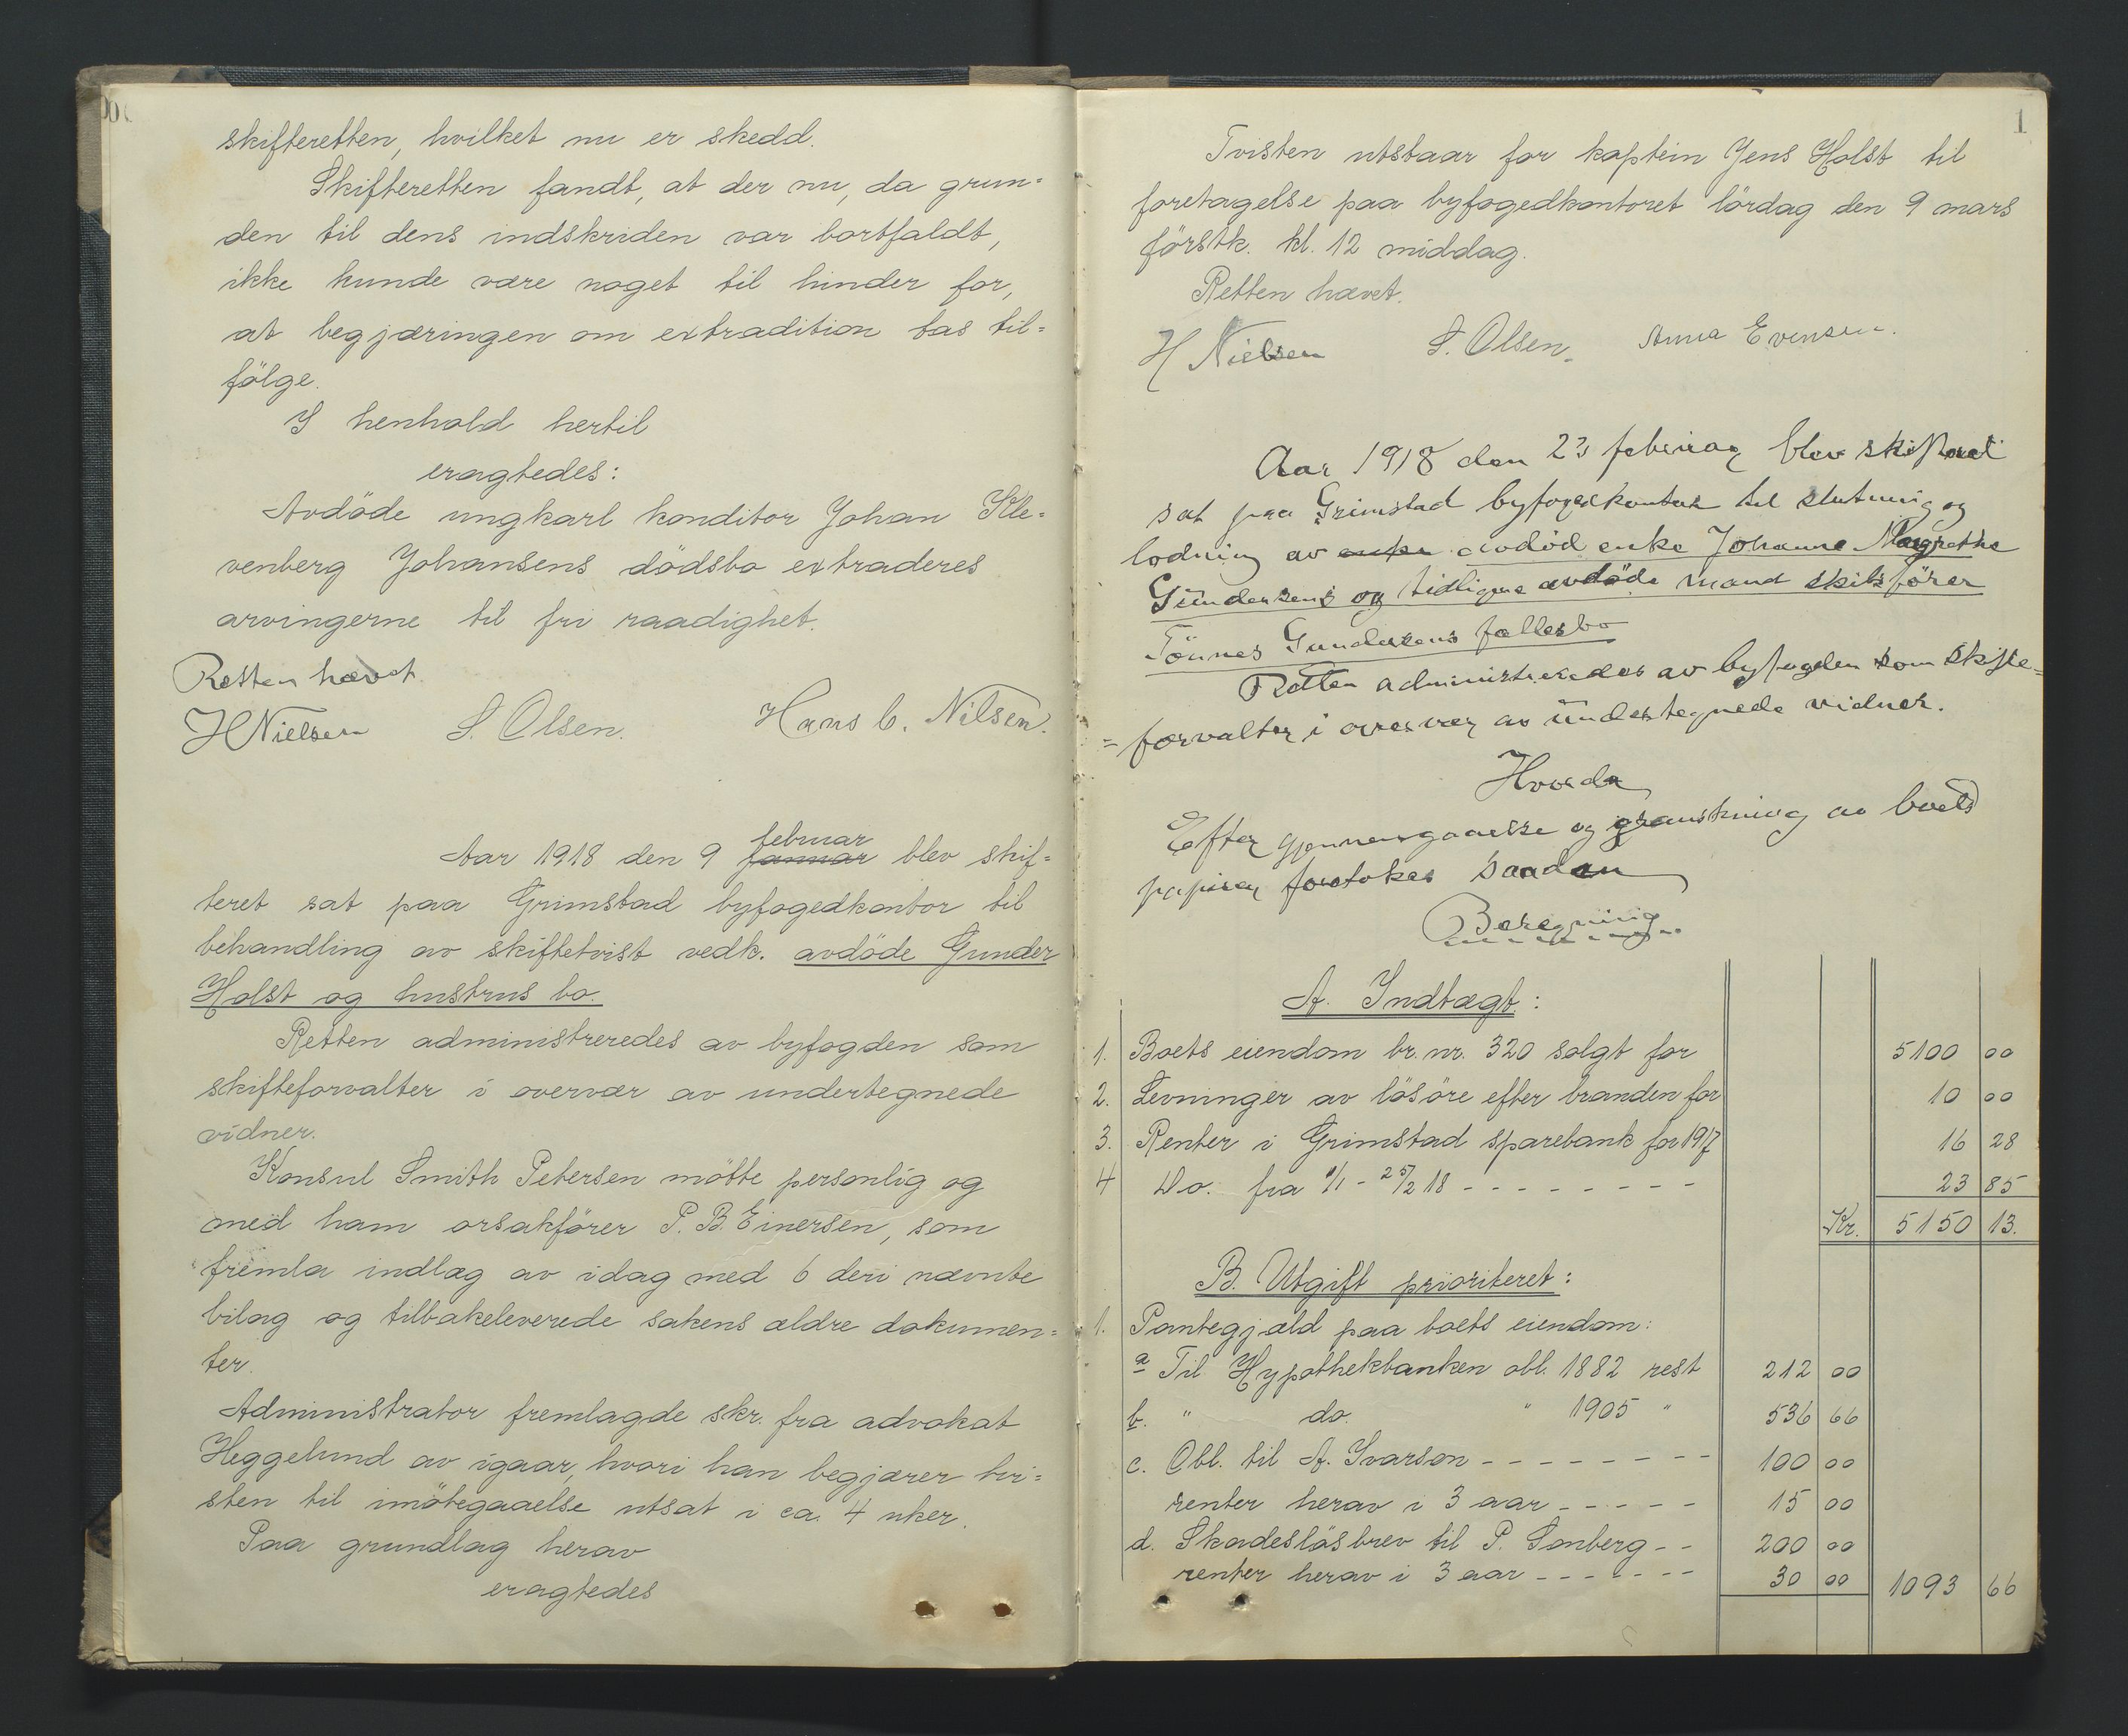 skifteretten, hvilket nu er skedd.
Skifteretten fandt, at der nu, da grun=
den til dens indskriden var bortfaldt,
ikke kunde være noget til hinder for,
at begjæringen om extradition tas til=
følge.
I henhold hertil
eragtedes:
Avdöde ungkarl konditor Johan Kle=
venberg Johansens dödsbo extraderes
arvingerne til fri raadighet.
Retten hævet.
HNielsen S. Olsen. Hans C. Nilsen.
februar
Aar 1918 den 9 januar blev skif=
teret sat paa Grimstad byfogedkontor til
behandling av skiftetvist vedk. avdöde Gunder
Holst og hustrus bo.
Retten administreredes av byfogden som
skifteforvalter i overvær av undertegnede
vidner.
Konsul Smith Petersen mötte personlig og
med ham orsakförer P. B. Einersen, som
fremla indlæg av idag med 6 deri nævnte
bilag og tilbakeleverede sakens ældre dokumen=
ter.
Administrator fremlagde skr. fra advokat
Heggelund av igaar, hvori han begjærer tvi=
sten til imötegaaelse utsat i ca. 4 uker.
Paa grundlag herav
eragtedes
1
Tvisten utstaar for kaptein Jens Holst til
foretagelse paa byfogedkontoret lördag den 9 mars
förstk. kl. 12 middag.
Retten hævet.
H Nielsen S. Olsen. Anna Evensen.
Aar 1918 den 23 februar blev skifteret
sat paa Grimstad byfogedkontor til slutning og
lodning av enke avdöd enke Johanne Margrethe
Gundersens og tidligere avdöde mand skibsförer
Tönnes Gundersens fællesbo
Retten administreredes av byfogden som skifte=
=forvalter i overvær av undertegnede vidner.
Hvorda
Efter gjennemgaaelse og granskning av boets
papirer foretokes saadan
Beregning
A. Indtægt:
1. Boets eiendom br. nr. 320 solgt for 5100 00
2. Levninger av lösöre efter branden for 10 00
3. Renter i Grimstad sparebank for 1917 16 28
4 Do. fra 1/1 - 25/2 18 - - - - - - - - 23 85
Kr. 5150 13.
B. Utgift prioriteret:
1. Pantegjæld paa boets eiendom:
a Til Hypothekbanken obl. 1882 rest 212 00
b. " do. " 1905 " 536 66
c. Obl. til A. Ivarson - - - - - - - - 100 00
renter herav i 3 aar - - - - - 15 00
d. Skadeslösbrev til P. Sonberg - - 200 00
renter herav i 3 aar - - - - - - - 30 00 1093 66